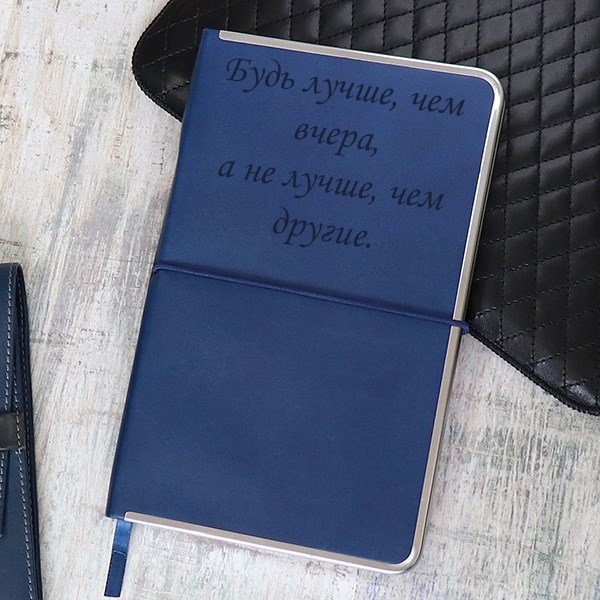 Будь лучше, чем
вчера,
а не лучше, чем
другие.